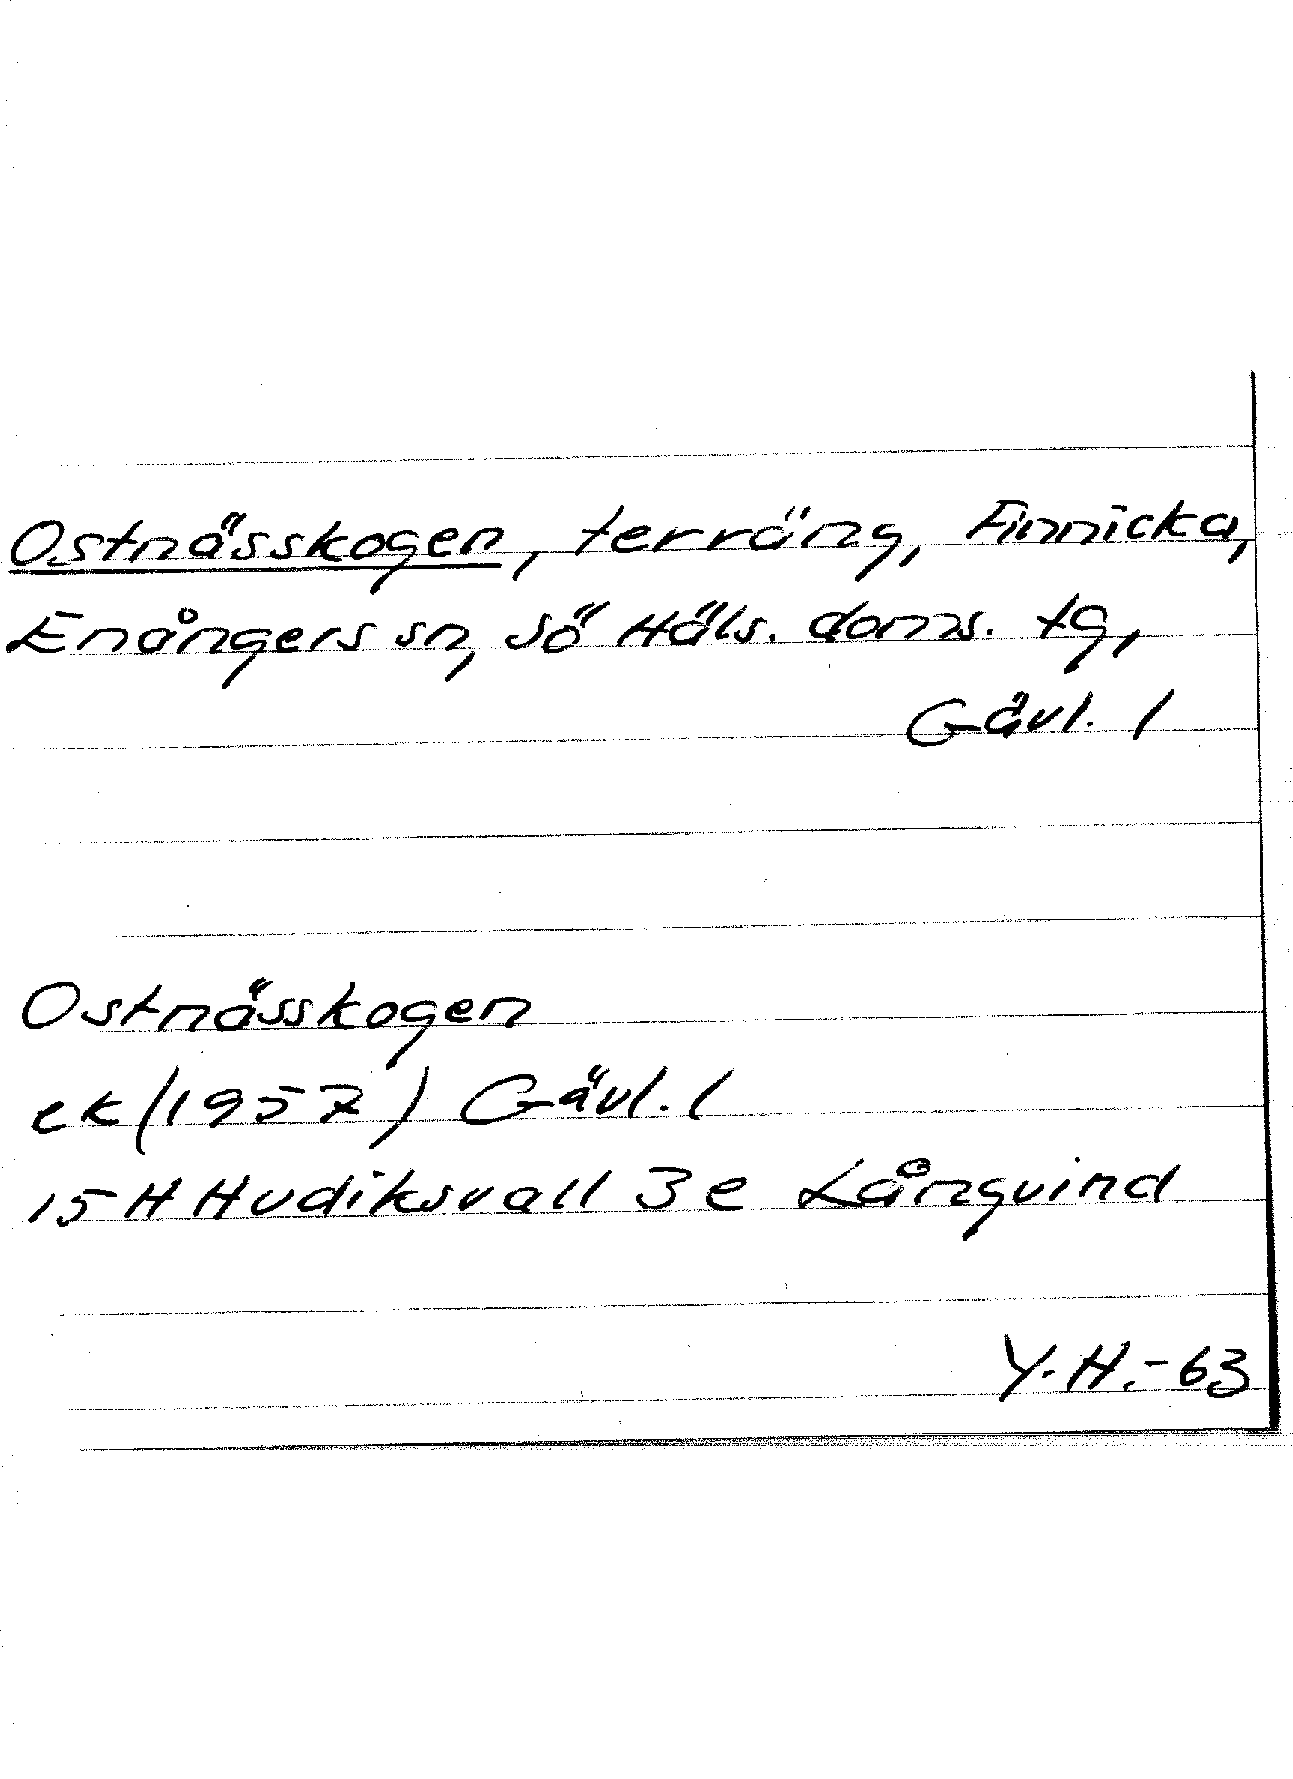 Ostnässkogen, terräng, Finnicka,
Enångers sn, Sö Häls. doms. tg,
Gävl. l
Ostnässkogen
ek (1957) Gävl. l
15 H Hudiksvall 3 e Långvind
Y.H.-63